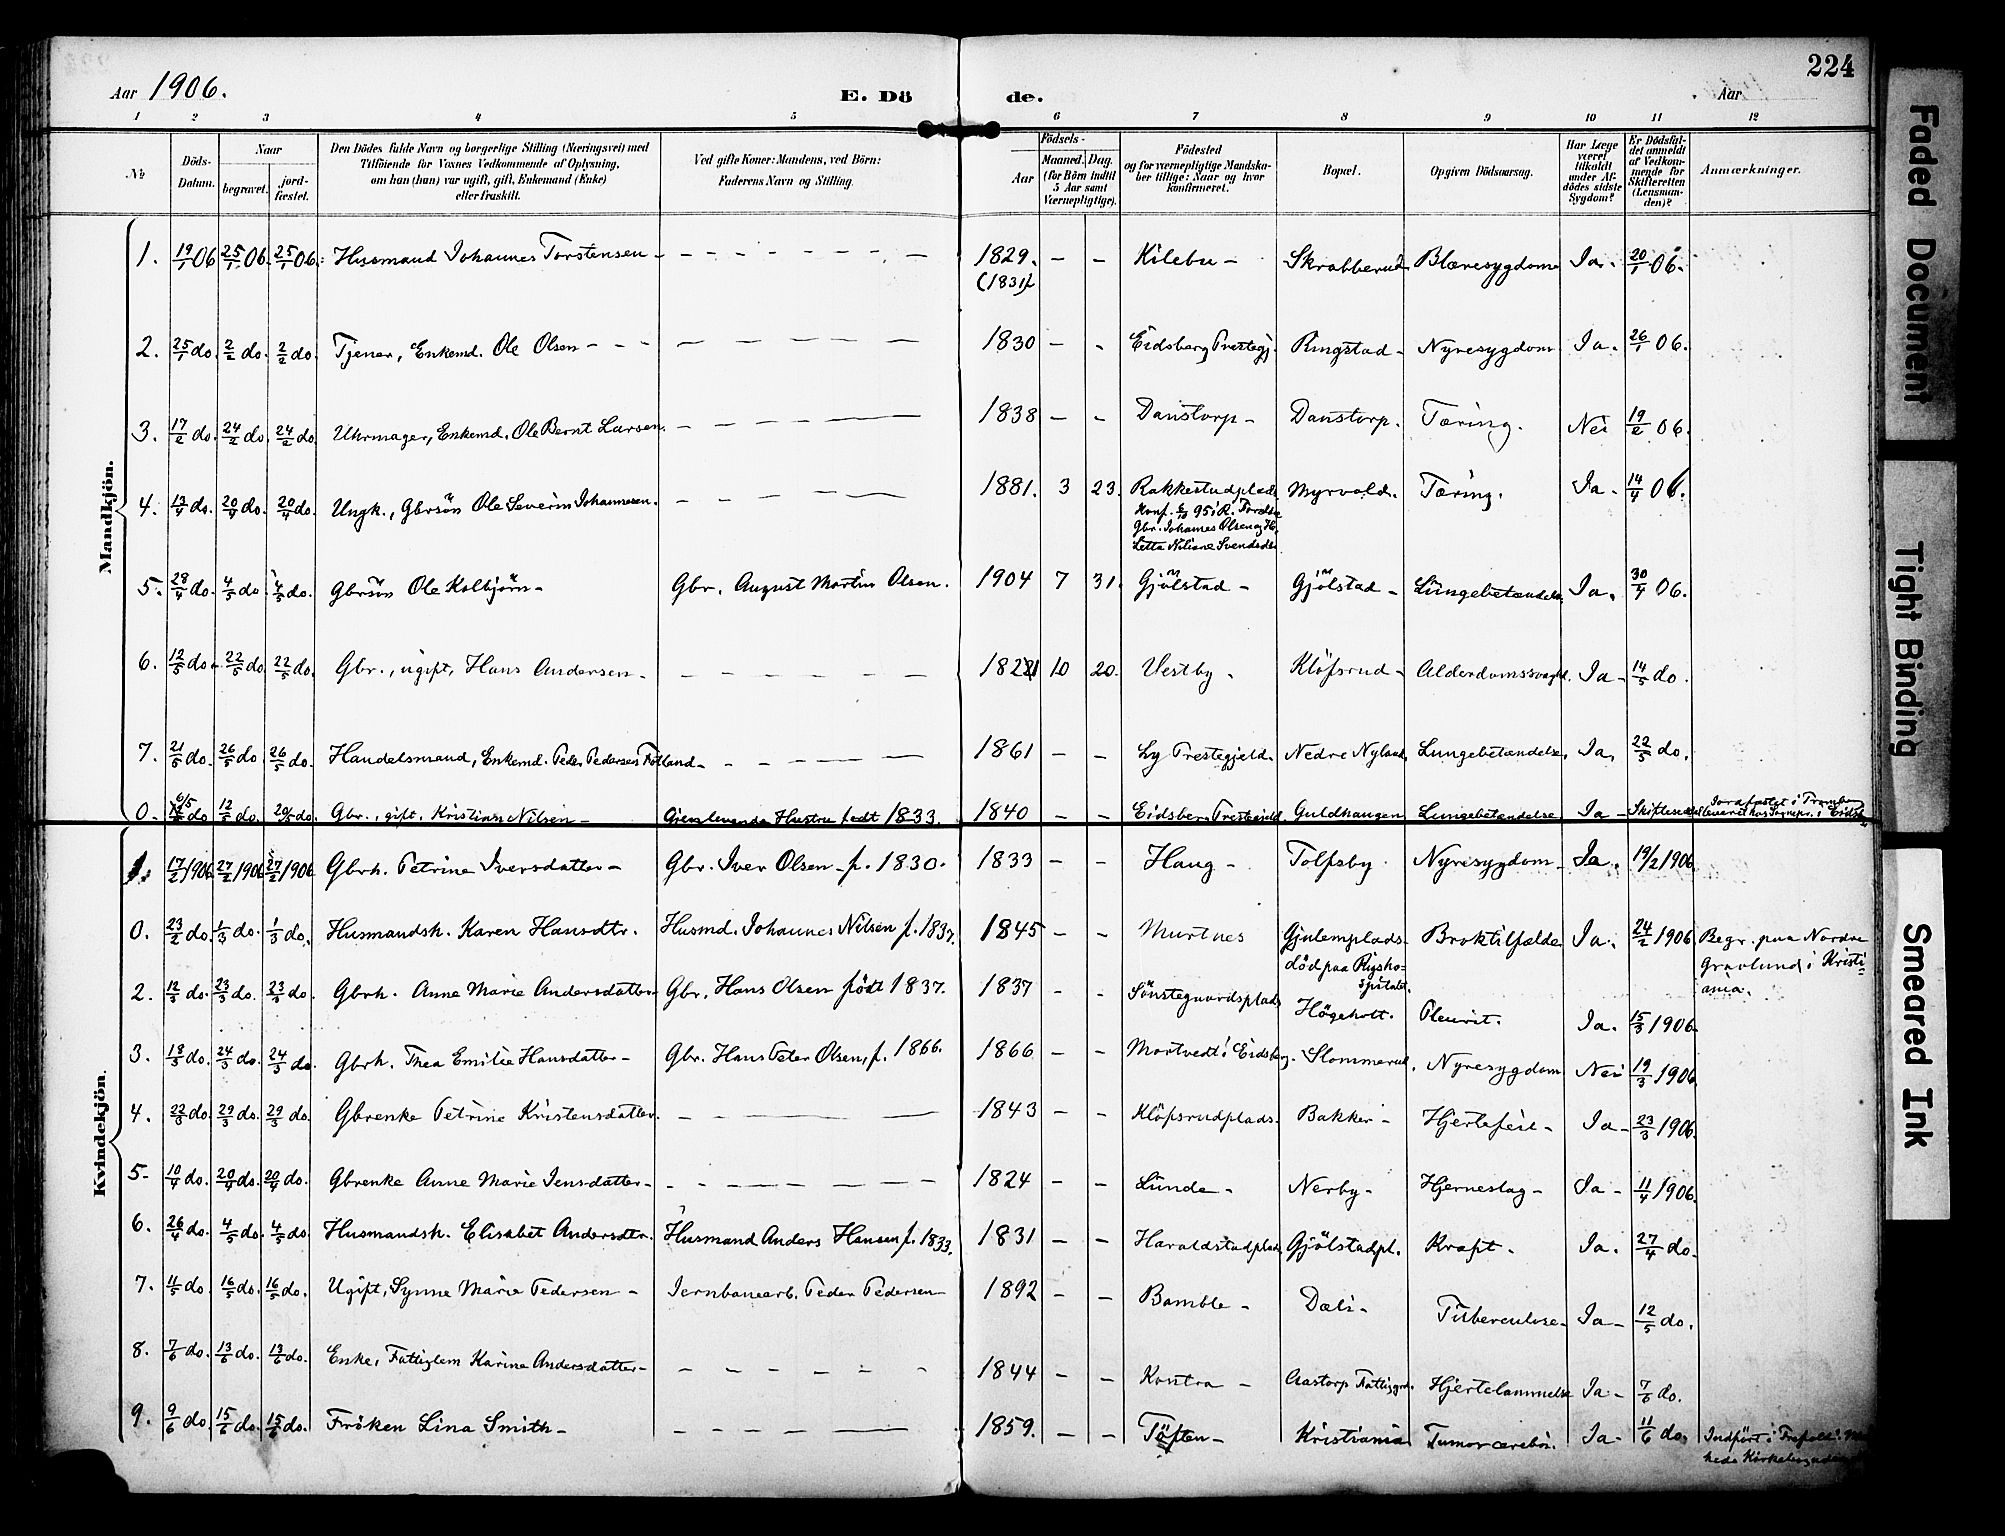 224
Aar 1906.
E. Dö de.
Aar
1 2 3 4 5 6 7 8 9 10 11 12
№
Döds-Datum.
Naar
begravet.
jord-fæstet.
Den Dödes fulde Navn og borgerlige Stilling (Næringsvei) med
Tilföiende for Voxnes Vedkommende af Oplysning,
om han (hun) var ugift, gift, Enkemand (Enke)
eller fraskilt.
Ved gifte Koner: Mandens, ved Börn:
Faderens Navn og Stilling.
Födsels-
Aar
Maaned. Dag.
(for Börn indtil
5 Aar samt
Værnepligtige).
Födested
og for værnepligtige Mandska-
ber tillige: Naar og hvor
konfirmeret.
Bopæl.
Opgiven Dödsaarsag.
Har Læge
været
tilkaldt
under Af-
dødes sidste
Sygdom?
Er Dödsfal-
det anmeldt
af Vedkom-
mende for
Skifteretten
(Lensman-
den)?
Anmærkninger.
Mandkjön.
1. 19/1 06 25/1 06. 25/1 06. Husmand Johannes Torstensen - 1829. (1831) - - Kilebu - Skrabberud Blæresygdom Ja. 20/1 06.
2. 25/1 do. 2/2 do. 2/2 do. Tjener, Enkemd. Ole Olsen - 1830 - - Eidsberg Prestegj. Ringstad - Nyresygdom Ja. 26/1 06.
3. 17/2 do. 24/2 do. 24/2 do. Uhrmager, Enkemd. Ole Bernt Larsen. - 1838 - - Danstorp - Danstorp. Tæring. Nei 19/2 06.
4. 13/4 do. 20/4 do. 20/4 do. Ungk., Gbrsön Ole Severin Johannesen. - 1881. 3 23. Rakkestadplads Myrvold. Tæring. Ja. 14/4 06.
Konf. 6/10 95 i R.
Gbr. Johannes Olsen og H.
5. 28/4 do. 4/5 do. 4/5 do. Gbrsön Ole Kolbjörn - Gbr. August Martin Olsen. 1904 7 31. Gjölstad - Gjölstad - Lungebetændelse. Ja. 30/4 06.
6. 12/5 do. 22/5 do. 22/5 do. Gbr., ugift, Hans Andersen - 10 20. Vestby - Klöfsrud - Alderdomssvaghd. Ja - 14/5 do.
7. 21/5 do. 26/5 do. 26/5 do. Handelsmand, Enkemd. Peder Pedersen - 1861 - - Ly Prestegjeld. Nedre Nyland. Lungebetændelse, Ja, 22/5 do.
0. 6/5 do 12/5 do. 20/5 do. Gbr., gift, Kristian Nilsen - Gjenlevende Hustru født 1833. 1840 - - Eidsberg Prestegjeld Guldhaugen Lungebetændelse Ja - Jordfæstet i
Kvindekjön.
1. 17/2 1906 27/2 1906 27/2 1906 Gbrk. Petrine Iversdatter - Gbr. Iver Olsen - f. 1830. 1833 - - Haug - Tolfsby. Nyresygdom - Ja. 19/2 1906
0. 23/2 do. 1/3 do. 1/3 do. Husmandsk. Karen Hansdtr. Husmd. Johannes Nilsen f. 1837. 1845 - - Murtnes Gjulemplads. Broktilfælde Ja. 24/2 1906 Begr. paa Nordre
död paa Rigsho- Gravlund i Kristi-
spitalet. ania.
2. 12/3 do. 23/3 do. 23/3 do. Gbrk. Anne Marie Andersdatter Gbr. Hans Olsen født 1837. 1837 - - Sönstegaardsplads Högeholt. Pleurit. Ja. 15/3 1906.
3. 18/3 do. 24/3 do. 24/3 do. Gbrk. Thea Emilie Hansdatter - Gbr. Hans Peter Olsen, f. 1866. 1866 - - Mortvedt i Eidsberg. Slommerud. Nyresygdom Nei 19/3 1906.
4. 22/3 do. 29/3 do. 29/3 do. Gbrenke Petrine Kristensdatter. - 1843 - - Klöfsrudplads. Bakker - Hjertefeil - Ja - 23/3 1906.
5. 10/4 do. 20/4 do. 20/4 do. Gbrenke Anne Marie Jensdatter - 1824 - - Lunde - Nerby - Hjerneslag - Ja - 11/4 1906.
6. 26/4 do. 4/5 do. 4/5 do. Husmandsk. Elisabet Andersdtr. Husmand Anders Hansen f. 1833. 1831 - - Haraldstadplads Gjölstadpl. Kræft. Ja. 27/4 do.
7. 11/5 do. 16/5 do. 16/5 do. Ugift, Synne Marie Pedersen - Jernbanearb. Peder Pedersen 1892 - - Bamble - Dæli - Tuberculose - Ja - 12/5 do.
8. 7/6 do. 13/6 do. 13/6 do. Enke, Fattiglem Karine Andersdatter - 1844 - - Kontra - Aastorp Fattiggrd. Hjertelammelse Ja - 7/6 do.
9. 9/6 do 15/6 do. 15/6 do. Fröken Lina Smith - 1859. - - Töften - Kristiania Tumor cerebri. Ja - 11/6 do, Indført i
Faded Document
Tight Binding
Smeared Ink